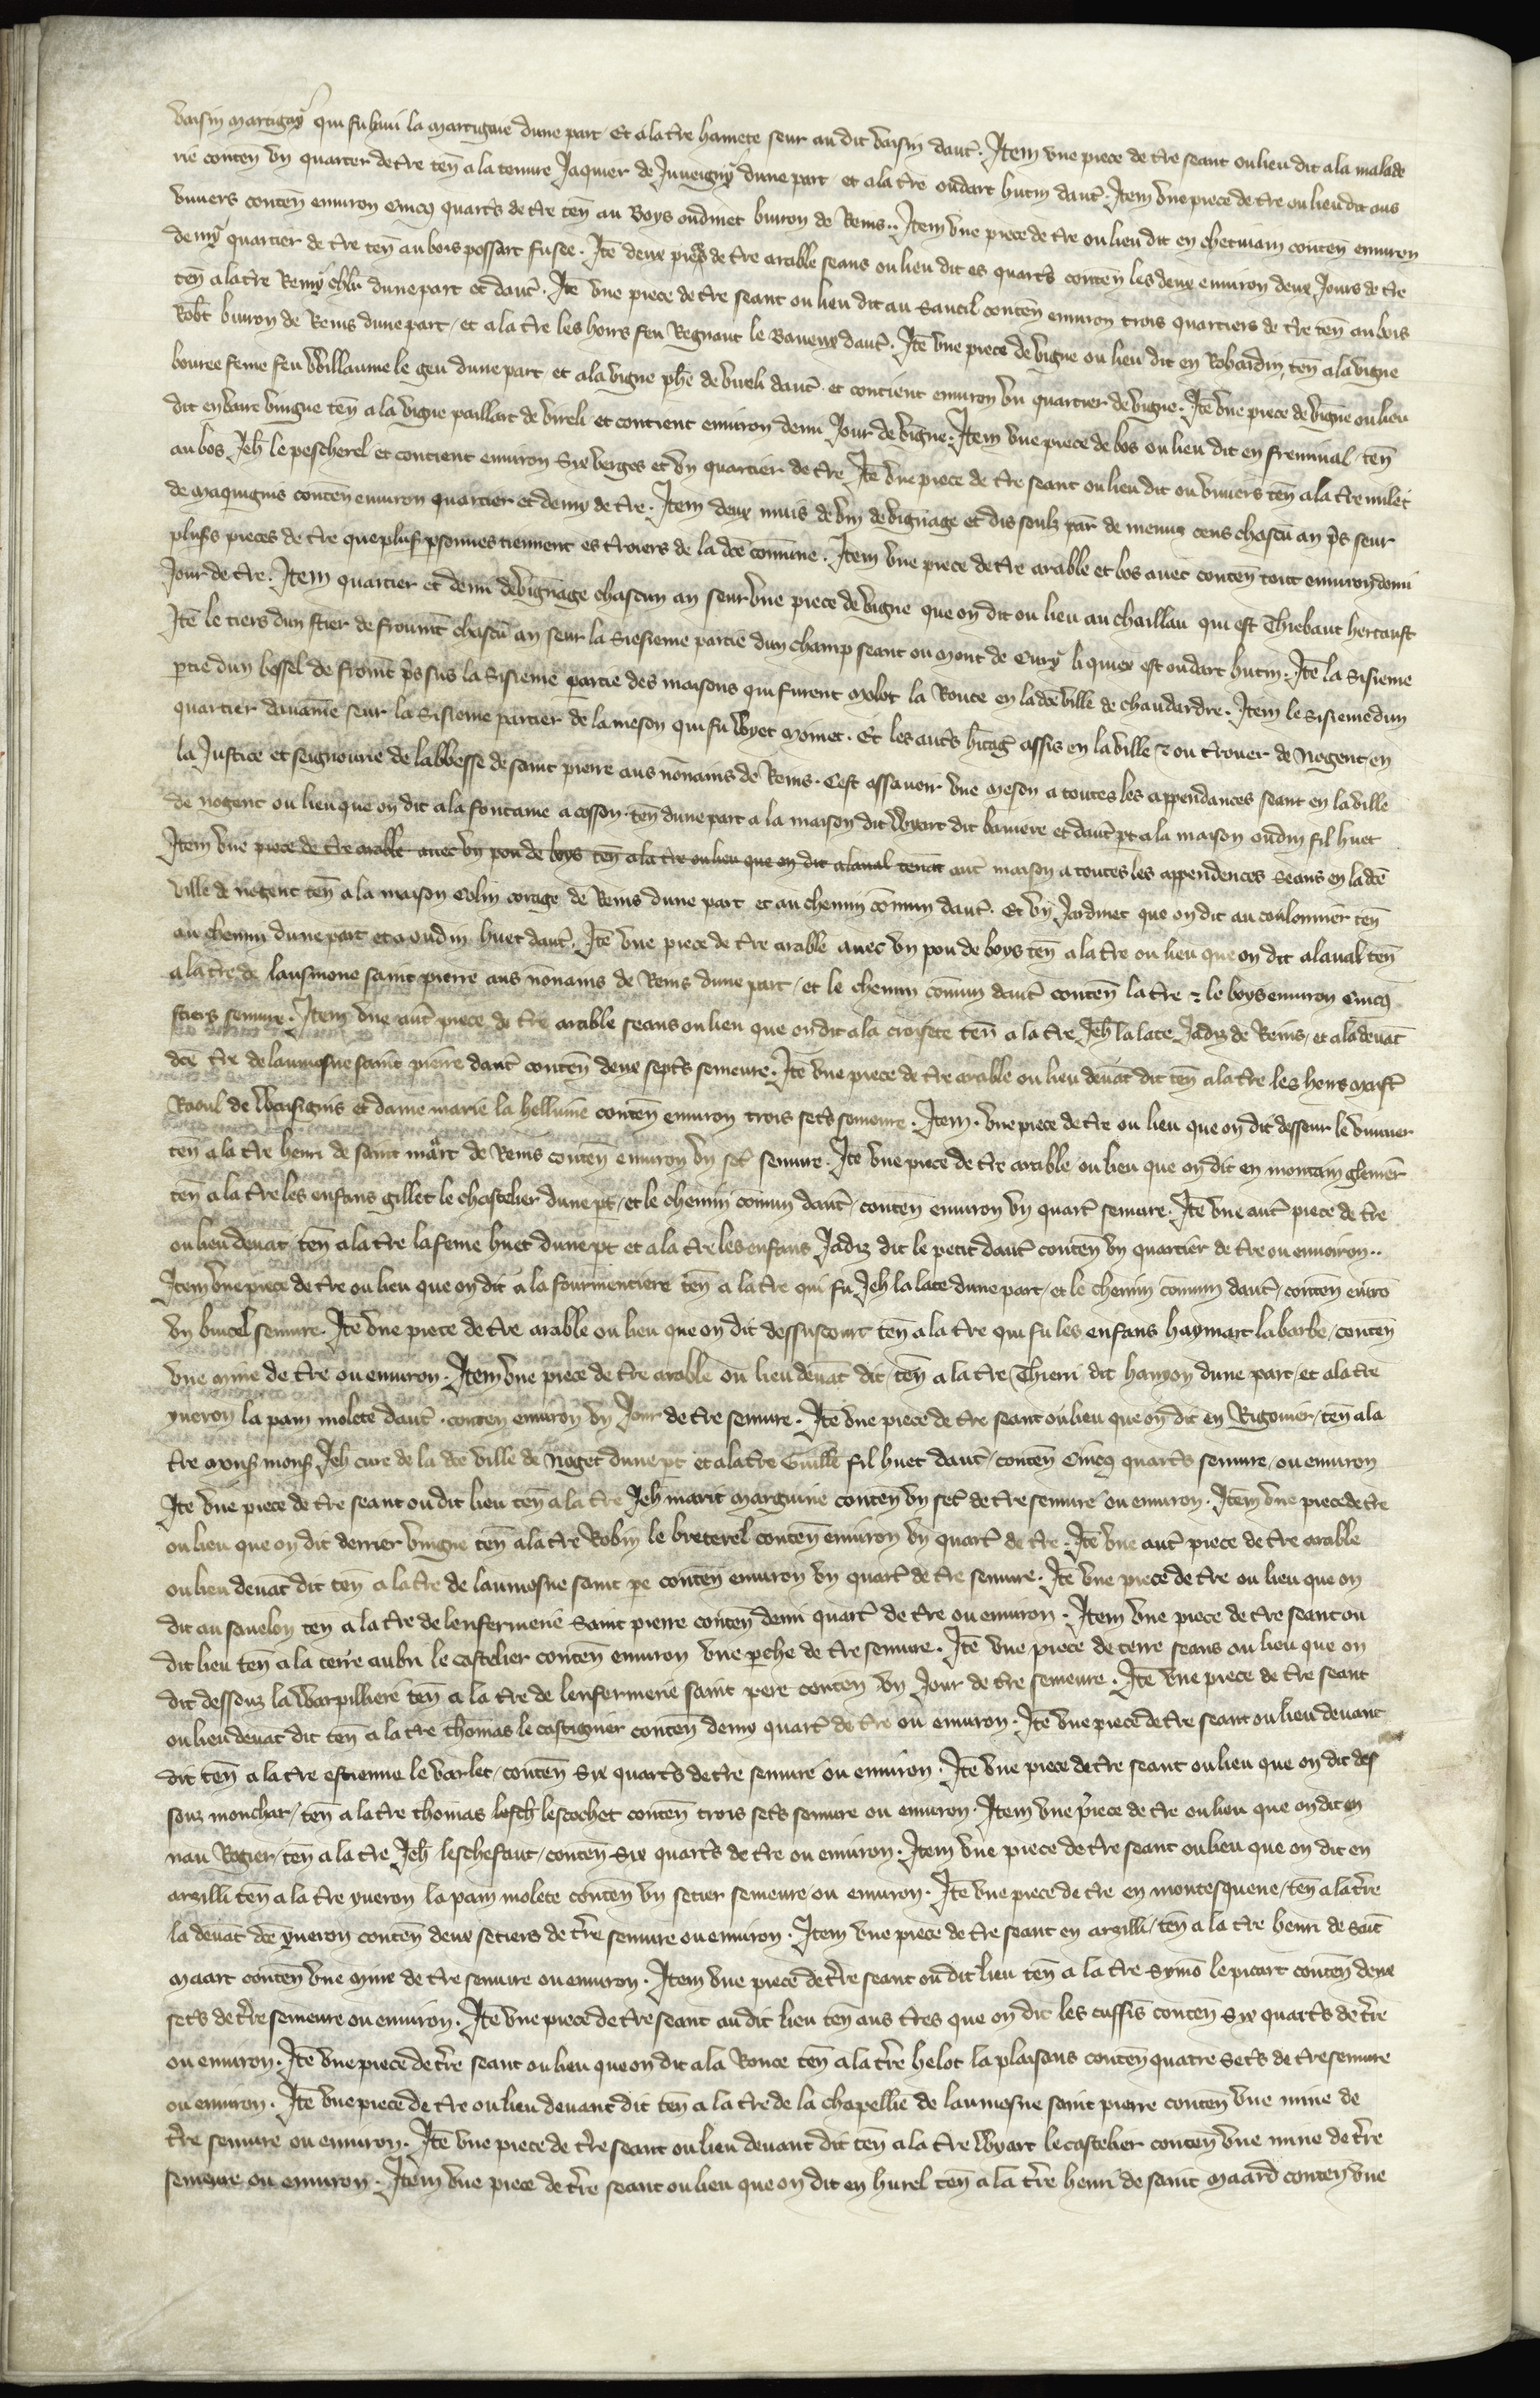 voisin martigny qui fu huui la martigue dune part. Et a la tre hamete seur au dit voisin daut. Item une piece de tre seant ou lieu dit a la malade
rie conten un quartier de tre ten a la terre Jaquier de Juueigny dune part et a la tre oudart hutin daut. Item une piece de tre ou lieu dit aus
viuiers conten enuiron cincq quarts de tre ten au Boys oudinet buiron de Reins.. Item une piece de tre ou lieu dit en chetiuain conten enuiron
demy quartier de tre ten au bois possart fusee. Ite deux pieces de tre arable seans ou lieu dit es quarts conten les deux enuiron deux Jours de tre
ten a la tre Remy dune part et daut. Ite une piece de tre seant ou lieu dit au Sautil conten enuiron trois quartiers de tre ten au bois
Robt buiron de Reins dune part, et a la tre les hoirs feu Regnaut le Baueux daut. Ite une piece de vigne ou lieu dit en Robardin, ten a la vigne
bouree feme feu Willaume le geu dune part et a la vigne phe de vireli daut. et contient enuiron un quartier de vigne. Ite une piece de vigne ou lieu
dit en vaire vingne ten a la vigne paillart de vireli et contient enuiron demi Jour de vigne. Item une piece de bos ou lieu dit en freminal, ten
au bos Jeh le pescherel et contient enuiron Six verges et un quartier de tre Ite une piece de tre seant ou lieu dit ou viuiers ten a la tre milet
de maquignis conten enuiron quartier et demy de tre. Item deux muis de vin de vignage et dis soulz par de menus cens chascu an ps seur
plusrs pieces de tre que plusrs psonnes tiennent es troiers de la dce comune. Item une piece de tre arable et bos auec conten tout enuiron demi
Jour de tre. Item quartier et demi de vignage chascun an seur une piece de vigne que on dit ou lieu au chaillau qui est Thiebaut hertaust
Ite le tiers dun stier de froumt chascu an seur la Sisieme partie dun champ seant ou mont de Cury li quiex est oudart hutin. Ite la Sisieme
ptie dun bossel de fromt ps sus la Sisieme partie des maisons qui furent molot la Route en la dce ville de chaudardre. Item le Sisieme dun
quartier dauaine seur la Sisieme partier de la meson qui fu Wyet moinet. Et les auts hitag assis en la ville & ou trouer de Nogent en
la Justice et seignourie de labbesse de saint pierre aus nonains de Reins. Cest assauoir une meson a toutes les appendances seant en la ville
de nogent ou lieu que on dit a la fontaine a cosson ten dune part a la maison dit Wyart dit baniere et daut pt a la maison oudin fil huet
Item une piece de tre arable auec un pou de boys ten a la tre ou lieu que on dit alaual tenat aut maison a toutes les appendences Seans en la dce
ville de nogent ten a la maison Colin corage de Reins dune part et au chemin comun daut. Et un Jardinet que on dit au coulonnier ten
au chemin dune part et a oudin huet daut. Ite une piece de tre arable auec un pou de boys ten a la tre ou lieu que on dit alaual ten
a la tre de lausmone saint pierre aus nonains de Reins dune part, et le chemin comun daut conten la tre & le boys enuiron cincq
stiers semure. Item une aut piece de tre arable seans ou lieu que on dit a la croisete ten a la tre Jeh la late Jadiz de Reins, et a la deuat
dce tre de laumosne saint pierre daut conten deux septs semeure. Ite une piece de tre arable ou lieu deuat dit ten a la tre les hoirs maist
Raoul de Warisignis et dame marie la helluine conten enuiron trois sets semeure. Item. une piece de tre ou lieu que on dit desseur le viuuer
ten a la tre henri de saint maart de Reins conten enuiron un set semure. Ite une piece de tre arable ou lieu que on dit en montain glemer
ten a la tre les enfans gillet le chastelier dune pt, et le chemin comun daut, conten enuiron un quart semure. Ite une aut piece de tre
ou lieu deuat ten a la tre la feme huet dune pt et a la tre les enfans Jadiz dit le petit daut conten un quartier de tre ou enuoiron..
Item une piece de tre ou lieu que on dit a la fourmentiere ten a la tre qui fu Jeh la late dune part, et le chemin comun daut, conten euiro
un buicel semure. Ite une piece de tre arable ou lieu que on dit dessuscourt ten a la tre qui fu les enfans haymart labarbe, conten
une mine de tre ou enuiron. Item une piece de tre arable ou lieu deuat dit, ten a la tre Thieri dit hanyon dune part, et a la tre
yueron la pain molete daut. conten enuiron un Jour de tre semure. Ite une piece de tre seant ou lieu que on dit en Rigonier, ten a la
tre monsr monsr Jeh cure de la dce ville de Noget dune pt et a la tre Guille fil huet daut, conten Cincq quarts semure, ou enuiron
Ite une piece de tre seant ou dit lieu ten a la tre Jeh marit marguine conten un set de tre semure ou enuiron. Item une piece de tre
ou lieu que on dit derrier vingne ten a la tre Robin le breterel conten enuiron un quart de tre. Ite une aut piece de tre arable
ou lieu deuat dit ten a la tre de laumosne saint pe conten enuiron un quart de tre semure. Ite une piece de tre ou lieu que on
dit au sauelon ten a la tre de lenfermerie Saint pierre conten demi quart de tre ou enuiron. Item une piece de tre seant ou
dit lieu ten a la terre aubri le castelier conten enuiron une perche de tre semure. Ite une piece de terre seans ou lieu que on
dit dessouz la Warpilliere ten a la tre de lenfermerie saint pere conten un Jour de tre semeure. Ite une piece de tre seant
ou lieu deuat dit ten a la tre thomas le castignier conten demy quart de tre ou enuiron. Ite une piece de tre seant ou lieu deuant
dit ten a la tre estienne le varlet, conten Six quarts de tre semure ou enuiron. Ite une piece de tre seant ou lieu que on dit des
souz monchar, ten a la tre thomas lesch lescochet conten trois sets semure ou enuiron. Item une piece de tre ou lieu que on dit en
nau Rogier, ten a la tre Jeh leschefaut, conten Six quarts de tre ou enuiron. Item une piece de tre seant ou lieu que on dit en
arzilli ten a la tre yueron la pain molete conten un setier semeure ou enuiron. Ite une piece de tre en montesquene, ten a la tre
la deuat dce yueron conten deux setiers de tre semure ou enuiron. Item une piece de tre seant en arzilli, ten a la tre henri de Sait
maart conten une mine de tre semure ou enuiron. Item une piece de tre seant ou dit lieu ten a la tre Symo le picart conten deux
sets de tre semeure ou enuiron. Ite une piece de tre seant au dit lieu ten aus tres que on dit les cuffis conten Six quarts de tre
ou enuiron. Ite une piece de tre seant ou lieu que on dit a la Ronce ten a la tre helot la plaisans conten quatre Sets de tre semure
ou enuiron. Ite une piece de tre ou lieu deuant dit ten a la tre de la chapellie de laumosne saint pierre conten une mine de
tre semure ou enuiron. Ite une piece de tre seant ou lieu deuant dit ten a la tre Wyart le castelier conten une mine de tre
semeure ou enuiron. Item une piece de tre seant ou lieu que on dit en hurel ten a la tre henri de saint maard conten une